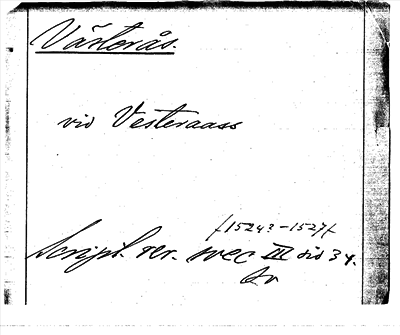 Västerås.
vid Vesteraass
(1524?-1527)
Script. rer. svec III sid 34.